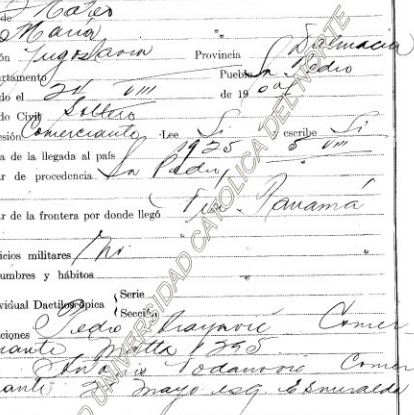 de Mateo
María
ón Yugoslavia Provincia Dalmacia
artamento Pueblo Sn Pedro
do el 24 VIII de 190
do Civil Soltero
esión Comerciante Lee Si escribe Si
a de la llegada al país 1925 5 VIII
ar de procedencia Sn Pedro
ar de la frontera por donde llegó Panamá
icios militares No
umbres y hábitos
vidual Dactiloscópica Serie
Sección
ciones Pedro Comer
ciante Matta 1295
Comer
ciante mayo esq Esmeralda
UNIVERSIDAD CATOLICA DEL NORTE